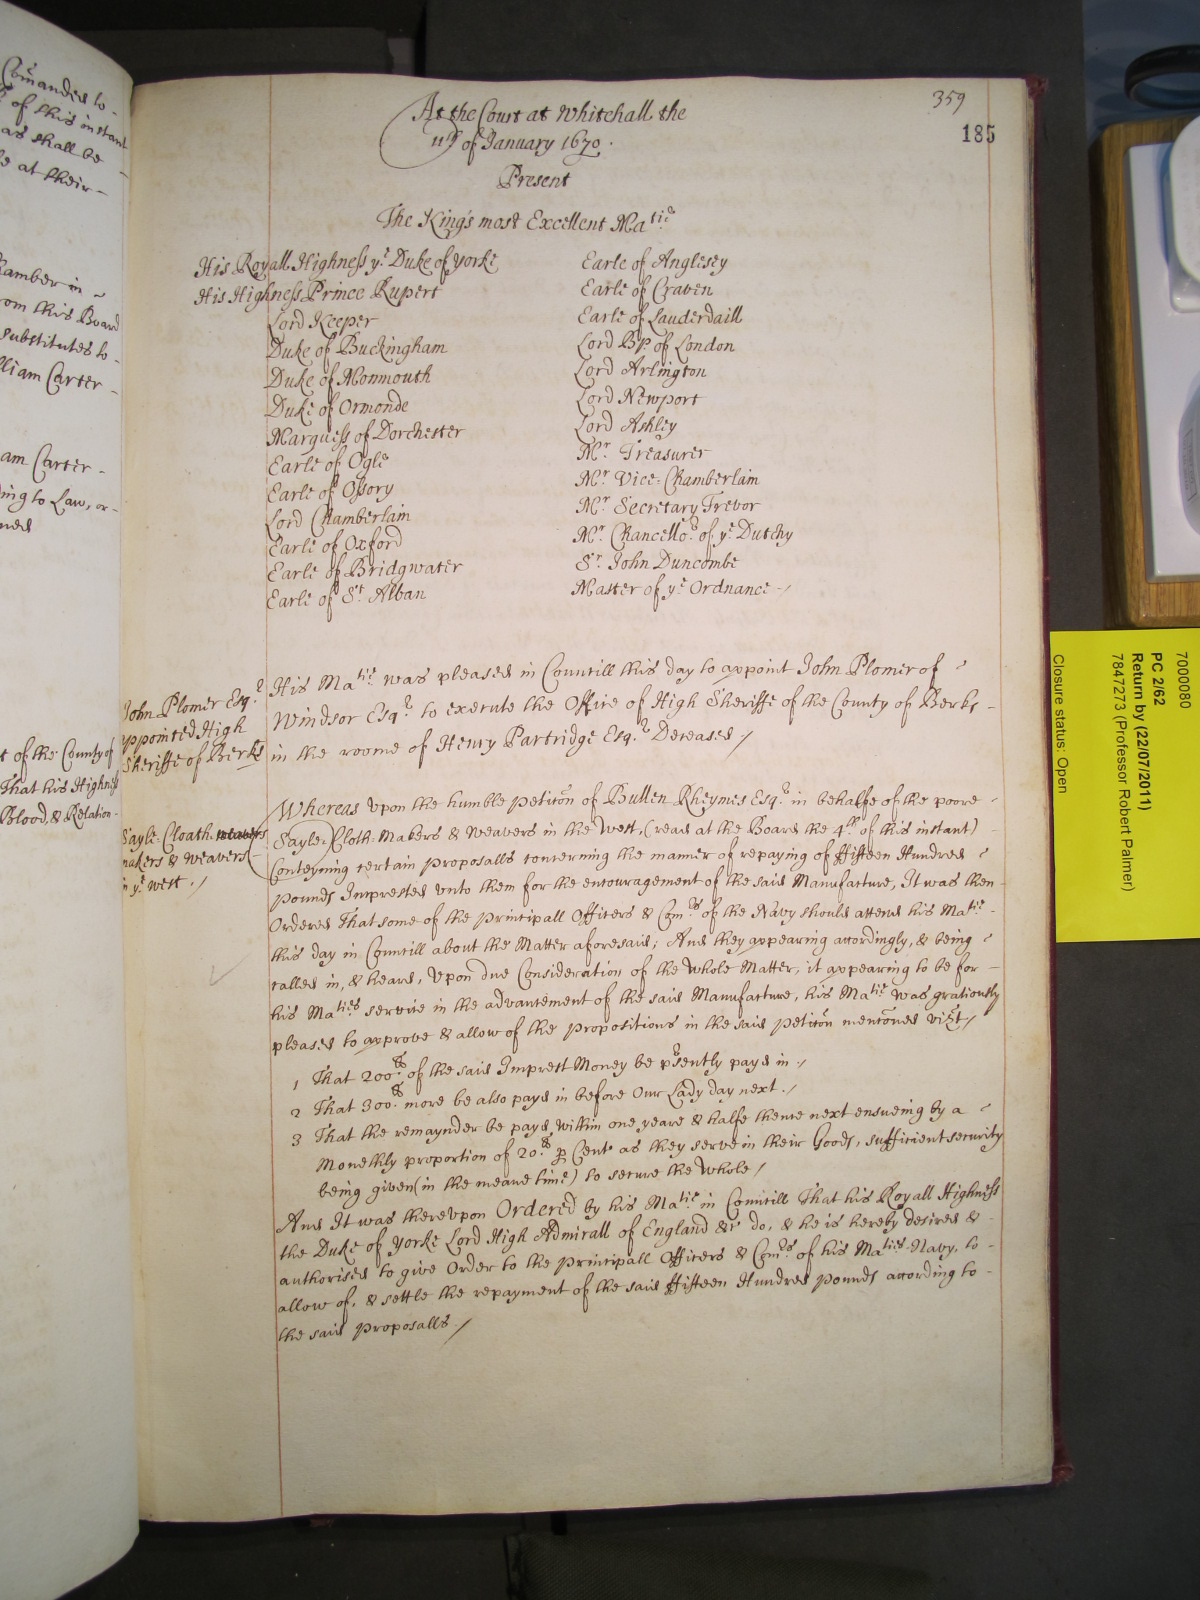 Comanded to
of this instant
as shall be
at their
amber in
om this Board
substitutes to
lliam Carter
am Carter
ing to Law, or
ned
t of the County of
That his Highness
Blood, & Relation
359
185
At the Court at Whitehall the
11th of January 1670.
Present
The Kings most Excellent Matie
His Royall Highness ye Duke of Yorke
His Highness Prince Rupert
Lord Keeper
Duke of Buckingham
Duke of Monmouth
Duke of Ormonde
Marquess of Dorchester
Earle of Ogle
Earle of Ossory
Lord Chamberlain
Earle of Oxford
Earle of Bridgwater
Earle of St Alban
Earle of Anglesey
Earle of Craven
Earle of Lauderdaill
Lord Bp. of London
Lord Arlington
Lord Newport
Lord Ashley
Mr. Treasurer
Mr. Vice-Chamberlain
Mr. Secretary Trevor
Mr. Chancellor. of ye Dutchy
Sr. John Duncombe
Master of ye Ordnance
John Plomer Esqr.
appointed High
Sheriffe of Berks
His Matie was pleased in Councill this day to appoint John Plomer of
Windsor Esqr. to execute the Office of High Sheriffe of the County of Berks
in the roome of Henry Partridge Esqr. Deceased /
Sayle-Cloath-weavers
makers & weavers
in ye west ./
Whereas upon the humble petition of Bullen Rheymes Esqr. in behalfe of the poore
Sayle-Cloth-Makers & Weavers in the West, (read at the Board the 4th of this instant)
Conteyning certain proposalls concerning the manner of repaying of ffifteen Hundred
pounds Imprested unto them for the encouragement of the said Manufacture, It was then
Ordered That some of the Principall Officers & Comrs of the Navy should attend his Matie
this day in Councill about the Matter aforesaid; And they appearing accordingly, & being
called in, & heard, Upon due Consideration of the whole Matter, it appearing to be for
his Maties service in the advancement of the said Manufacture, his Matie was gratiously
pleased to approve & allow of the propositions in the said petition mentioned vizt /
1 That 200l. of the said Imprest Money be presently payd in ./
2 That 300l. more be also payd in before Our Lady day next ./
3 That the remaynder be payd within one yeare & halfe thence next ensueing by a
Monethly proportion of 20l. p Cent as they serve in their Goods, sufficient security
being given (in the meane time) to secure the Whole /
And It was thereupon Ordered by his Matie in Councill That his Royall Highness
the Duke of Yorke Lord High Admirall of England &c do, & he is hereby desired &
authorised to give Order to the Principall Officers & Comrs of his Maties Navy, to
allow of, & settle the repayment of the said ffifteen Hundred pounds according to
the said proposalls /
7000080
PC 2/62
Return by (22/07/2011)
7847273 (Professor Robert Palmer)
Closure status: Open